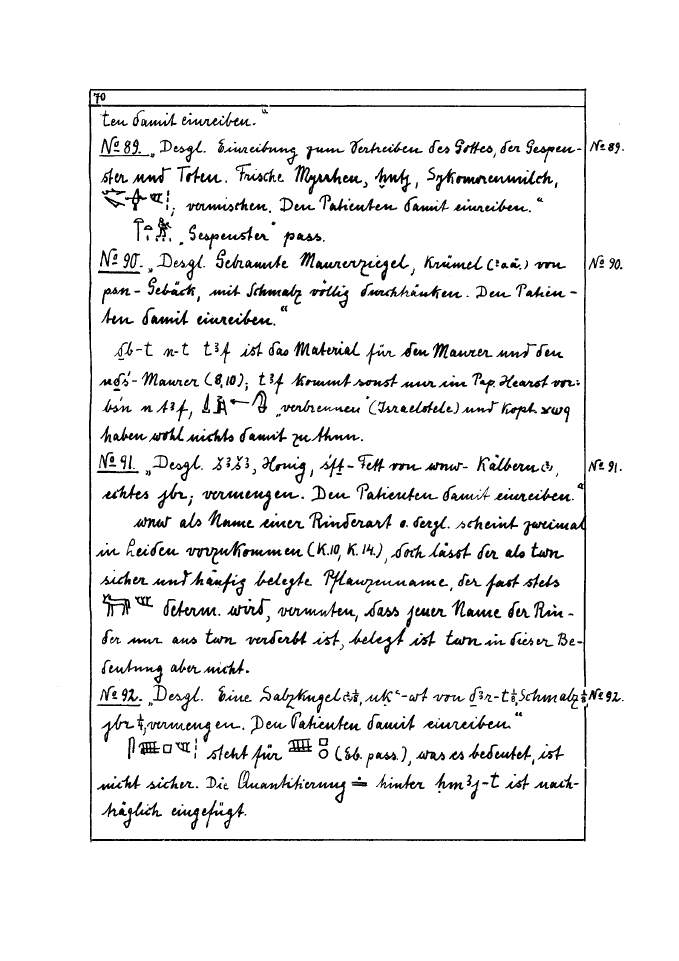 70
ten damit einreiben."
No 89. „Desgl. Einreibung zum Vertreiben des Gottes, der Gespen- No 89.
ster und Toten. Frische Myrrhen, Sykomorenmilch,
; vermischen. Den Patienten damit einreiben."
„Gespenster" pass.
No 90. „Desgl. Gebrannte Maurerziegel, Krümel (?aä.) von No 90.
psn-Gebäck, mit Schmalz völlig durchtränken. Den Patien-
ten damit einreiben."
ḏb-t n-t tꜣf ist das Material für den Maurer und den
nḏś-Maurer (8,10); tꜣf kommt sonst nur im Pap. Hearst vor:
bśn n tꜣf, „verbrennen" (Israelstele) und kopt. ϫⲱϥ
haben wohl nichts damit zu thun.
No 91. „Desgl. Honig, śfṯ-Fett von wnw-Kälbern (?), No 91.
echtes jbr; vermengen. Den Patienten damit einreiben."
wnw als Name einer Rinderart o. dergl. scheint zweimal
in Leiden vorzukommen (K.10, K.14.), doch lässt der als twn
sicher und häufig belegte Pflanzenname, der fast stets
determ. wird, vermuten, dass jener Name der Rin-
der nur aus twn verderbt ist, belegt ist twn in dieser Be-
deutung aber nicht.
No 92. „Desgl. Eine Salzkugel 1/8, von 1/8, Schmalz 1/8, No 92.
jbr 1/4, vermengen. Den Patienten damit einreiben."
steht für (Eb. pass.), was es bedeutet, ist
nicht sicher. Die Quantitierung hinter ḥmꜣj-t ist nach-
träglich eingefügt.